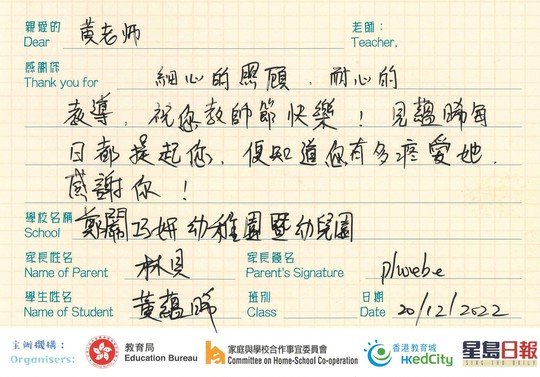 親愛的 黃老师 老師：
Dear Teacher,
感謝你
Thank you for 細心的照顧，耐心的
教導，祝您教師節快樂！見蘊晞每
日都提起您，便知道您有多疼愛她，
感謝你！
學校名稱
School 鄭關巧妍幼稚園暨幼兒園
家長姓名 林貝 家長簽名
Name of Parent Parent's Signature phoebe
學生姓名 黃蘊晞 班別 日期
Name of Student Class Date 20/12/2022
主辦機構：
Organisers:
教育局
Education Bureau
家庭與學校合作事宜委員會
Committee on Home-School Co-operation
香港教育城
HKedCity
星島日報
SING TAO DAILY